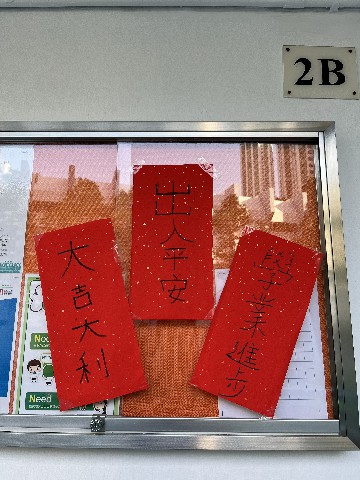 2B
大吉大利
出入平安
學業進步
Need